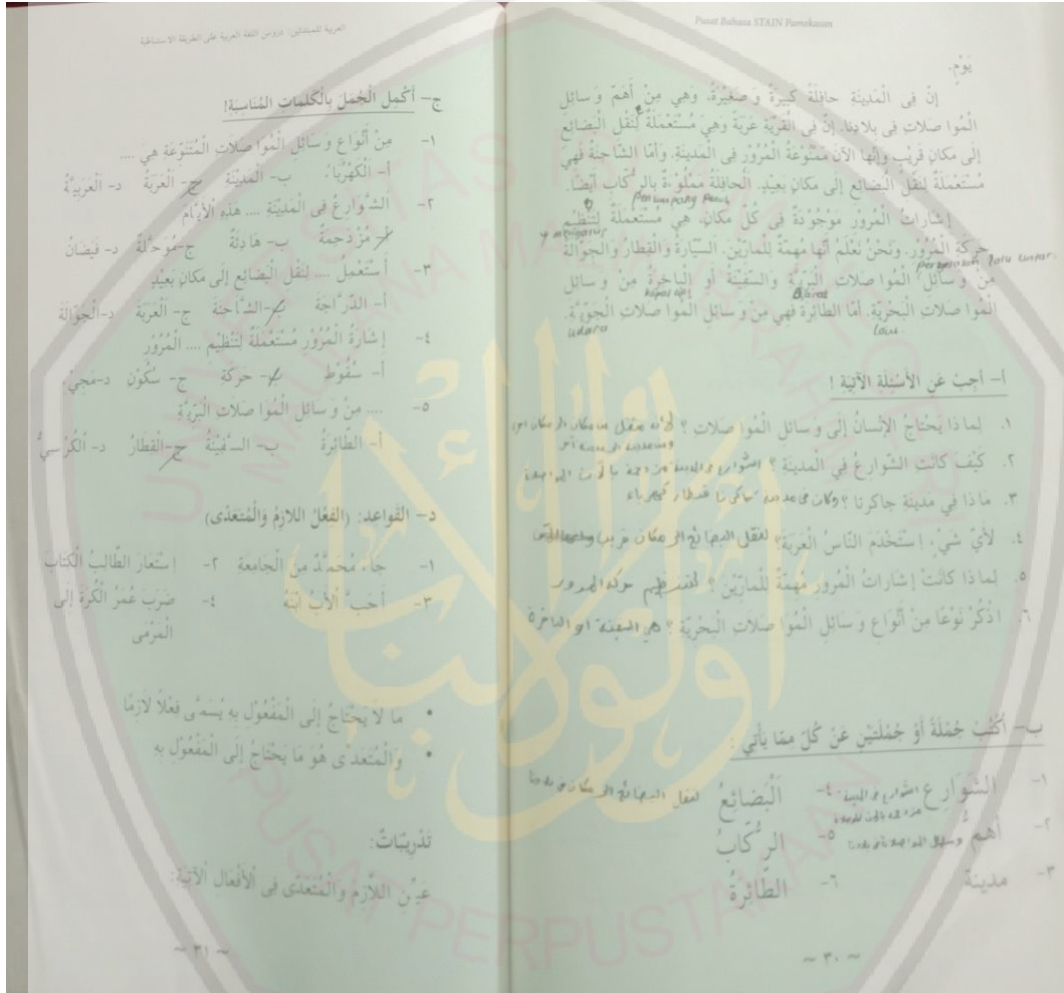 Pusat Bahasa STAIN Pamekasan
يَوْمٍ.
إِنَّ فِى الْمَدِيْنَةِ حَافِلَةً كَبِيْرَةً وَ صَغِيْرَةً. وَهِي مِنْ أَهَمِّ وَسائِلِ
الْمُوا صَلات فِى بِلادِنا. إِنَّ فِى الْقَرْيَةِ عَرَبَة وَهِيَ مُسْتَعْمَلَةٌ لِنَقْلِ الْبَضائِعِ
إِلى مَكانٍ قَرِيْبٍ وَإِنَّها الآنَ مَمْنُوْعَةُ الْمُرُوْرِ فِى الْمَدِيْنَةِ. وَأَمّا الشّاحِنَةُ فَهِيَ
مُسْتَعْمَلَةٌ لِنَقْلِ الْبَضائِعِ إِلى مَكانٍ بَعِيْدٍ. الْحافِلَةُ مَمْلُوْءَةٌ بِالرُّكّابِ أَيْضًا.
penumpang penuh
إِشاراتُ الْمُرُوْرِ مَوْجُوْدَةٌ فِى كُلِّ مَكانٍ. هِيَ مُسْتَعْمَلَةٌ لِتَنْظِيْمِ
mengatur
حَرَكَةِ الْمُرُوْرِ. وَنَحْنُ نَعْلَمُ أَنَّها مُهِمَّةٌ لِلْمارِّيْنَ. السَيّارَةُ وَالْقِطارُ وَالْجَوّالَةُ
lalu lintas
مِنْ وَسائِلِ الْمُوا صَلات الْبَرِّيَّةِ وَالسَّفِيْنَةُ أَوِ الْباخِرَةُ مِنْ وَسائِلِ
kapal api
darat
الْمُوا صَلات الْبَحْرِيَّةِ. أَمّا الطّائِرَةُ فَهِي مِنْ وَسائِلِ الْمُوا صَلات الْجَوِّيَّةِ.
udara
laut
أ– أَجِبْ عَنِ الأَسْئِلَةِ الآتِيَةِ !
١. لِماذا يَحْتاجُ الإِنْسانُ إِلى وَسائِلِ الْمُوا صَلات ؟
٢. كَيْفَ كانَت الشَّوارِعُ فِي الْمَدِيْنَةِ ؟
٣. ماذا فِي مَدِيْنَةِ جاكرتا ؟
٤. لأَيِّ شَيْءٍ إِسْتَخْدَمَ النّاسُ الْعَرَبَةَ؟ لنقل البضائع الى مكان قريب
٥. لِماذا كانَتْ إِشاراتُ الْمُرُوْرِ مُهِمَّةً لِلْمارِّيْنَ ؟ لتنظيم حركة المرور
٦. اذْكُرْ نَوْعًا مِنْ أَنْواعِ وَسائِلِ الْمُوا صَلات الْبَحْرِيَّةِ ؟ هي السفينة او الباخرة
ب– أُكْتُبْ جُمْلَةً أَوْ جُمْلَتَيْنِ عَنْ كُلّ مِمّا يَأْتِي :
١– الشَّوَارِعُ ٤– اَلْبَضَائِعُ لنقل البضائع الى مكان
٢– أَهَمُّ ٥– الرُّكَّابُ
٣– مدينة ٦– الطَّائِرَةُ
~ ٣٠ ~
العربية للمبتدئين: دروس اللغة العربية على الطريقة الاستنباطية
ج– أَكْمِلِ الْجُمَلَ بِالْكَلِماتِ الْمُناسِبَةِ!
١– مِنْ أَنْواعِ وَسائِلِ الْمُوا صَلات الْمُتَنَوِّعَةِ هي ....
أ– الْكَهْرُبَاءُ ب– الْمَدِيْنَةُ ج– الْعَرَبَةُ د– الْعَرَبِيَّةُ
٢– الشَّوارِعُ فِى الْمَدِيْنَةِ .... هذِهِ الأَيّامَ
أ– مُزْدَحِمَةٌ ب– هَادِئَةٌ ج–مُوْحِلَةٌ د– فَيَضَانُ
٣– أَسْتَعْمِلُ .... لِنَقْلِ الْبَضائِعِ إِلى مَكانٍ بَعِيْدٍ
أ– الدَّرَّاجَةَ ب–الشَّاحِنَةَ ج– الْعَرَبَةَ د–الْجَوَّالَةَ
٤– إِشارَةُ الْمُرُوْرِ مُسْتَعْمَلَةٌ لِتَنْظِيْمِ .... الْمُرُوْرِ
أ– سُقُوْطِ ب– حَرَكَةِ ج– سُكُوْنِ د–مَجِيْءِ
٥– .... مِنْ وَسائِلِ الْمُوا صَلات الْبَرِّيَّةِ
أ– الطَّائِرَةُ ب– السَّفِيْنَةُ ج–الْقِطَارُ د– الْكُرْسِيُّ
د– القَواعِد: (الفِعْلُ اللازِمُ وَالْمُتَعَدِّى)
١– جَاءَ مُحَمَّدٌ مِنَ الْجَامِعَةِ ٢– إِسْتَعَارَ الطَّالِبُ الْكِتَابَ
٣– أَحَبَّ الأَبُ ابْنَهُ ٤– ضَرَبَ عُمَرُ الْكُرَةَ إِلى
الْمَرْمَى
• مَا لاَ يَحْتَاجُ إِلَى الْمَفْعُوْلِ بِهِ يُسَمَّى فِعْلاً لاَزِمًا
• وَالْمُتَعَدِّى هُوَ مَا يَحْتَاجُ إِلَى الْمَفْعُوْلِ بِهِ
تَدْرِيْبَاتٌ:
عَيِّنِ اللاَّزِمَ وَالْمُتَعَدِّى فِى الأَفْعَالِ الآتِيَةِ:
~ ٣١ ~